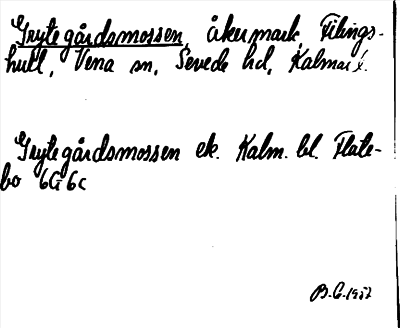 Grytegårdsmossen, åkermark, Filings-
hult, Vena sn, Sevede hd, Kalmar l.
Grytegårdsmossen ek. Kalm. bl. Flate-
bo 6G 6c
B.G. 1957